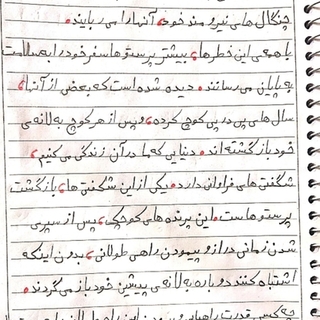 چنگال های نیرومند خود، آنها را می ربایند.
با همه ی این خطرها، بیشتر پرستوها سفر خود را به سلامت
به پایان می رسانند. دیده شده است که بعضی از آنها،
سال های پی در پی کوچ کرده، و پس از هر کوچ به لانه ی
خود بازگشته اند. دنیایی که ما در آن زندگی می کنیم،
شگفتی های فراوان دارد. یکی از این شگفتی ها، بازگشت
پرستوهاست. این پرنده های کوچک، پس از سپری
شدن زمانی دراز و پیمودن راهی طولانی، بدون اینکه
اشتباه کنند دوباره به لانه ی پیشین خود باز می گردند.
چه کسی قدرت راهیابی و پیمودن این راه طولانی را به